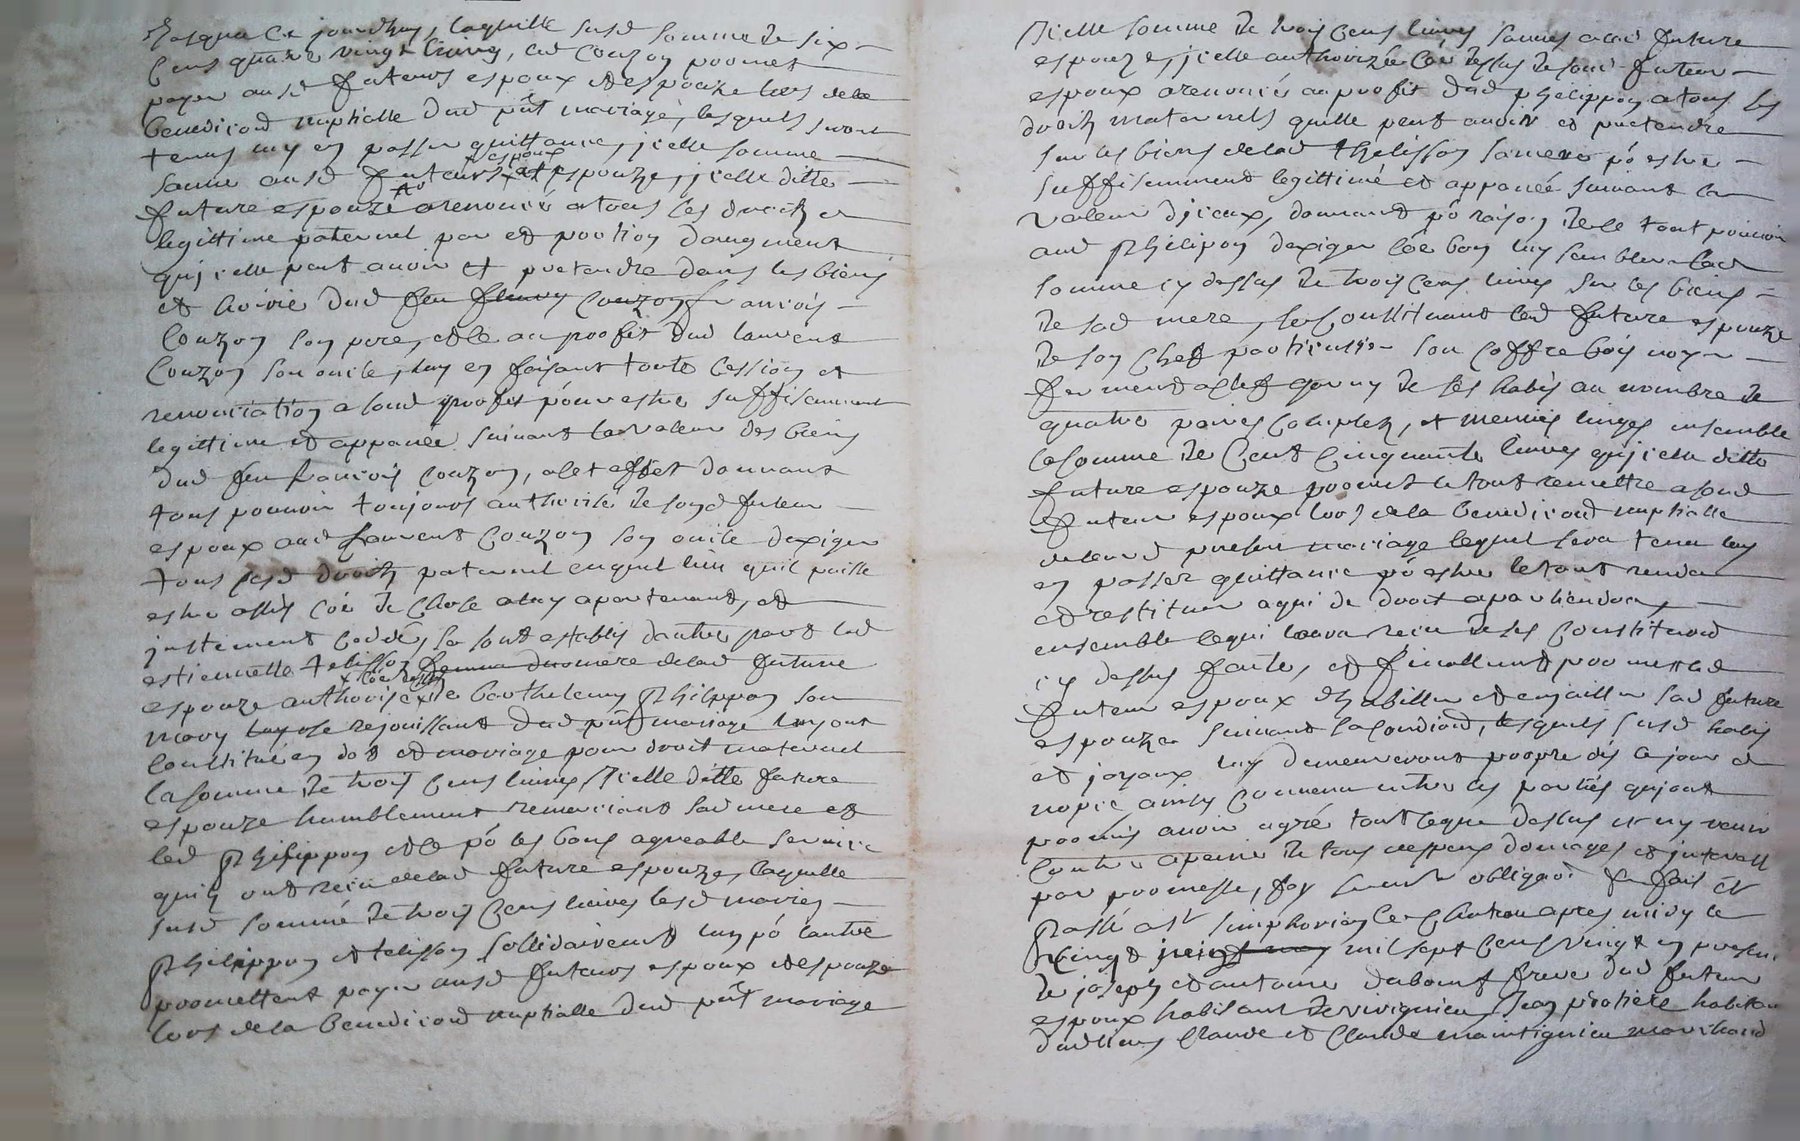 Jusqua Ce jourdhuy, laquelle susd somme de six
Cens quatre vingt livres, led Couzon promet
payer ausd futeurs espoux et espouze lors de la
benediction nuptialle dud pnt mariage, lesquels seront
tenus luy en passer quittance, jcelle somme
sauue ausd futeurs espoux et espouze, jcelle ditte
future espouze a renoncé a tous les droitz et
legittime paternel part et portion daugment
qujcelle peut auoir et pretendre dans les biens
et hoirie dud feu fleury Couzon francois
Couzon son pere, et ce au proffit dud laurent
Couzon son oncle, luy en faisant toute Cession et
renonciation a sond proffit pour estre suffisamment
legittimé et appanée suiuant la valeur des biens
dud feu francois Couzon, a cet effet donnant
tous pouuoir toujours authorisée de sond futeur
espoux aud Laurent Couzon son oncle dexiger
tous sesd droitz paternel enquel lieu quil puisse
estre assis Coe de Chose a luy apartenant, et
justement Cedée, se sont establis dautre part lad
estiennette telisson femme mere de lad future
espouze authorisée de barthelemy Philippon son
mary resouissant dud pnt mariage luy ont
Constitué en dot et mariage pour droit maternel
la somme de trois Cens liures, Jcelle ditte future
espouze humblement remerciant sad mere et
led Philippon et ce po les bons agreable seruice
quilz ont receu de lad future espouze, laquelle
susd somme de trois Cens liures lesd mariez
Philippon et telisson sollidairement lun po lautre
promettent payer ausd futeurs espoux et espouze
lors de la benediction nuptialle dud pnt mariage
Jcelle somme de trois Cens liures sauues a lad future
espouze, jcelle authorizée Coe dessus de sond futeur
espoux a renoncé au proffit dud philippon a tous les
droitz maternels quelle peut auoir et pretendre
sur les biens de lad thelisson sa mere po estre
suffisemment legittimé et appanée suiuant la
valeur djceux, donnant po raison de ce tout pouuoir
aud Philipon dexiger Coe bon luy semblera lad
somme cy dessus de trois Cens liures sur les biens
de sad mere, se Constituant lad future espouze
de son Chef particulier son Coffre bois noyer
ferment a clef garny de ses habis au nombre de
quatre paires Complet, et menues linges ensemble
la somme de Cent Cinquante liures qujcelle ditte
future espouze promet le tout remettre a sond
futeur espoux lors de la benediction nuptialle
de leurd present mariage lequel sera tenu luy
en passer quittance po estre le tout rendu
et restituer a qui de droit apartiendra,
ensemble ce qui laura receu de ses Constitution
cy dessus faite, et finallement promet led
futeur espoux dhabiller et enjailler sad future
espouze suiuant sa Condition, lesquels susd habis
et joyaux luy demeureront propre dis le jour de
nopce ainsy Conuenu entre les parties qui ont
promis auoir agré tout ce que dessus et ny venir
Contre a peine de tous despens domages et interest
par promesse, foy serment obligaon fait et
Passé a St simphorien le Chateau apres midy le
vingt mil sept Cens vingt en presence
de joseph et antoine dubout frere dud futeur
espoux habitant de Jean habitant
dud lieu Claude et Claude marchand